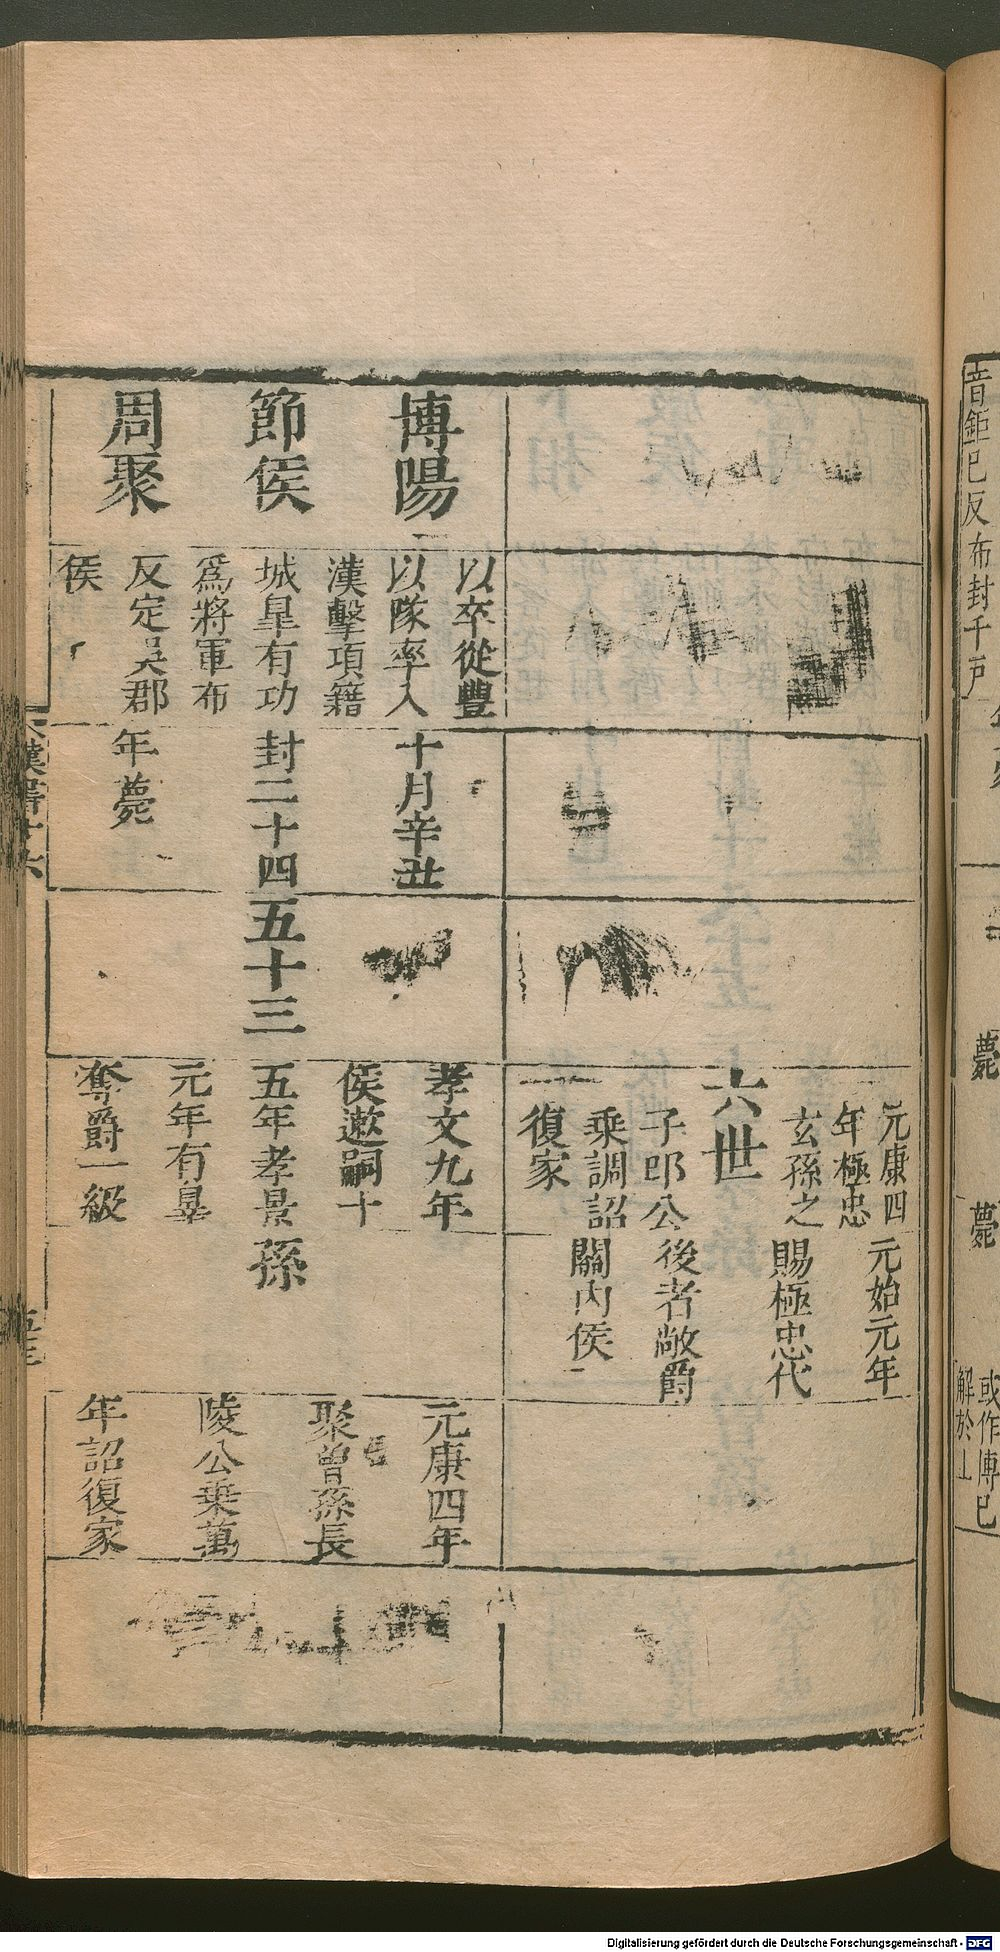 元康四
年極忠
玄孫之
六世
子郎公
乘調詔
復家
元始元年
賜極忠代
後者敞爵
關内侯
博陽
節侯
周聚
以卒從豐
以隊率入
漢擊項籍
城皐有功
爲將軍布
反定吳郡
侯
十月辛丑
封二十四
年薨
五十三
孝文九年
侯遬嗣十
五年孝景
元年有辠
奪爵一級
孫
元康四年
聚曾孫長
陵公乗萬
年詔復家
音鉅巳反布封千戶
薨
薨
或作傅巳
解於上
漢書十六
Digitalisierung gefördert durch die Deutsche Forschungsgemeinschaft - DFG